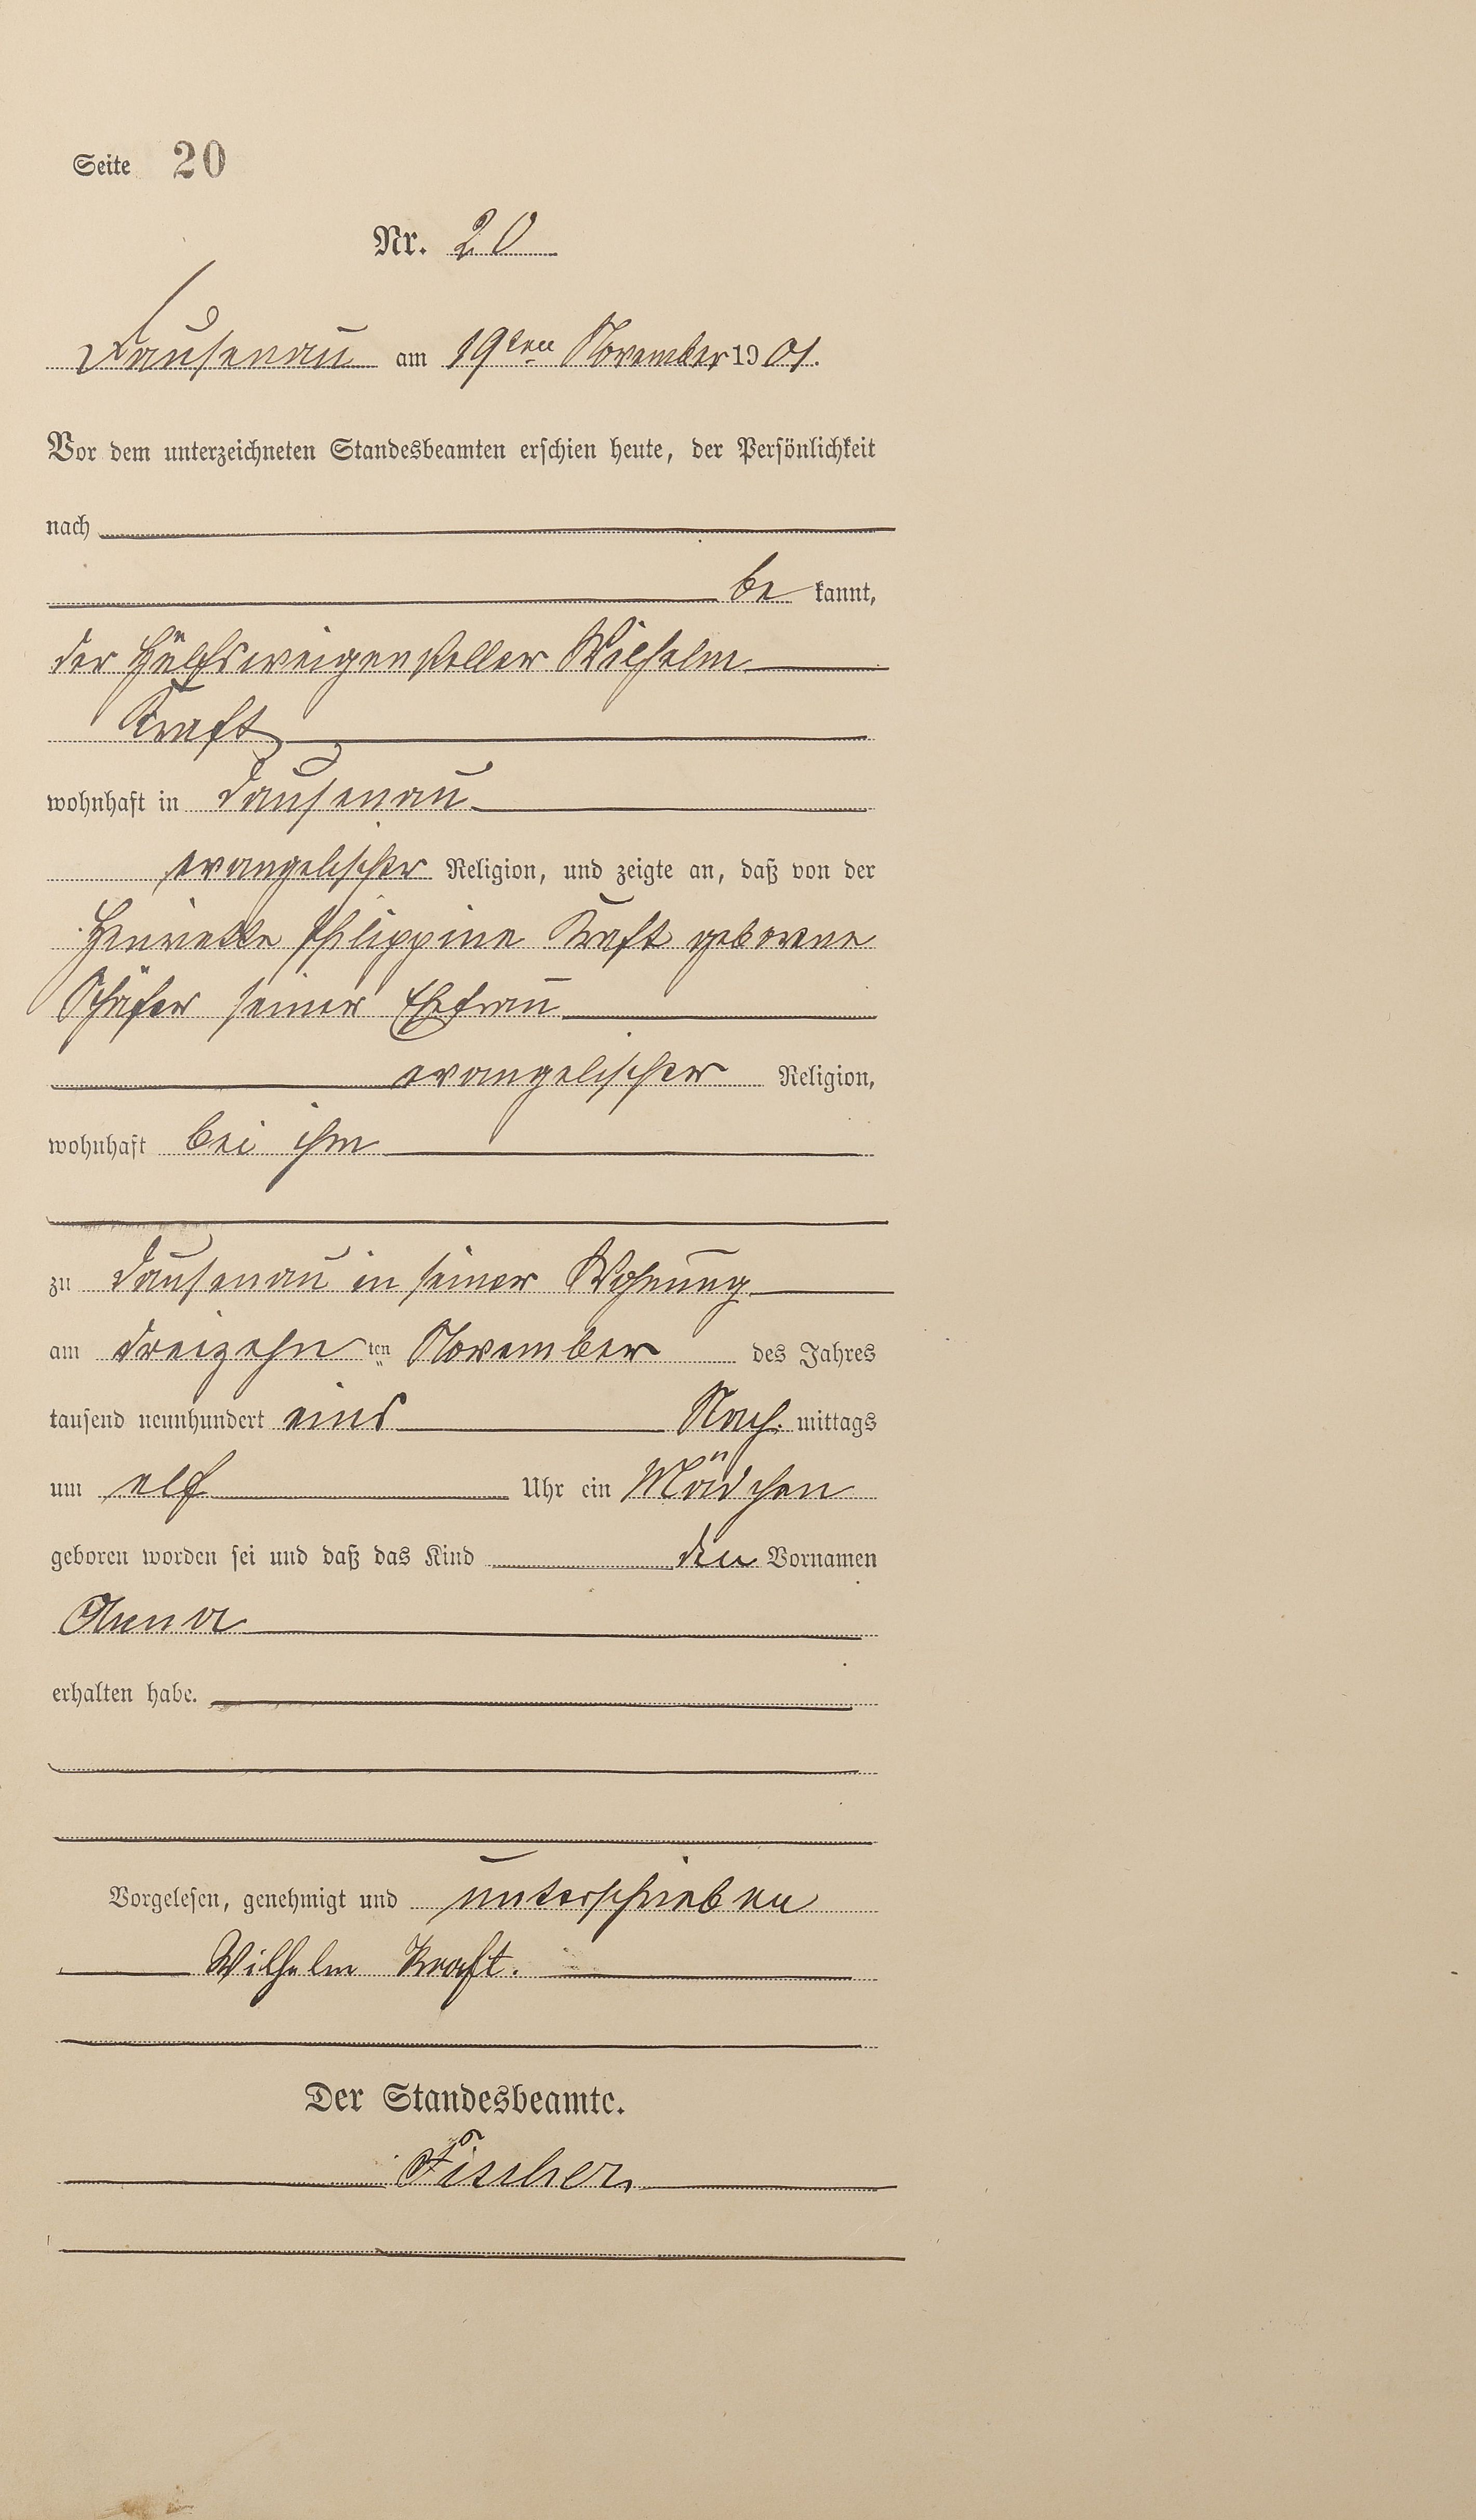 Seite 20
Nr. 20
Dausenau am 19ten November 1901.
Vor dem unterzeichneten Standesbeamten erschien heute, der Persönlichkeit
nach
be kannt,
der Hülfsweigensteller Wilhelm
Kraft
wohnhaft in Dausenau
evangelischer Religion, und zeigte an, daß von der
Henriette Philippine Kraft geborene
Schäfer seiner Ehefrau
evangelischer Religion,
wohnhaft bei ihm
zu Dausenau in seiner Wohnung
am dreizehn ten November des Jahres
tausend neunhundert eins Nach. mittags
um elf Uhr ein Mädchen
geboren worden sei und daß das Kind den Vornamen
Anna
erhalten habe.
Vorgelesen, genehmigt und unterschrieben
Wilhelm Kraft.
Der Standesbeamte.
Fischer.